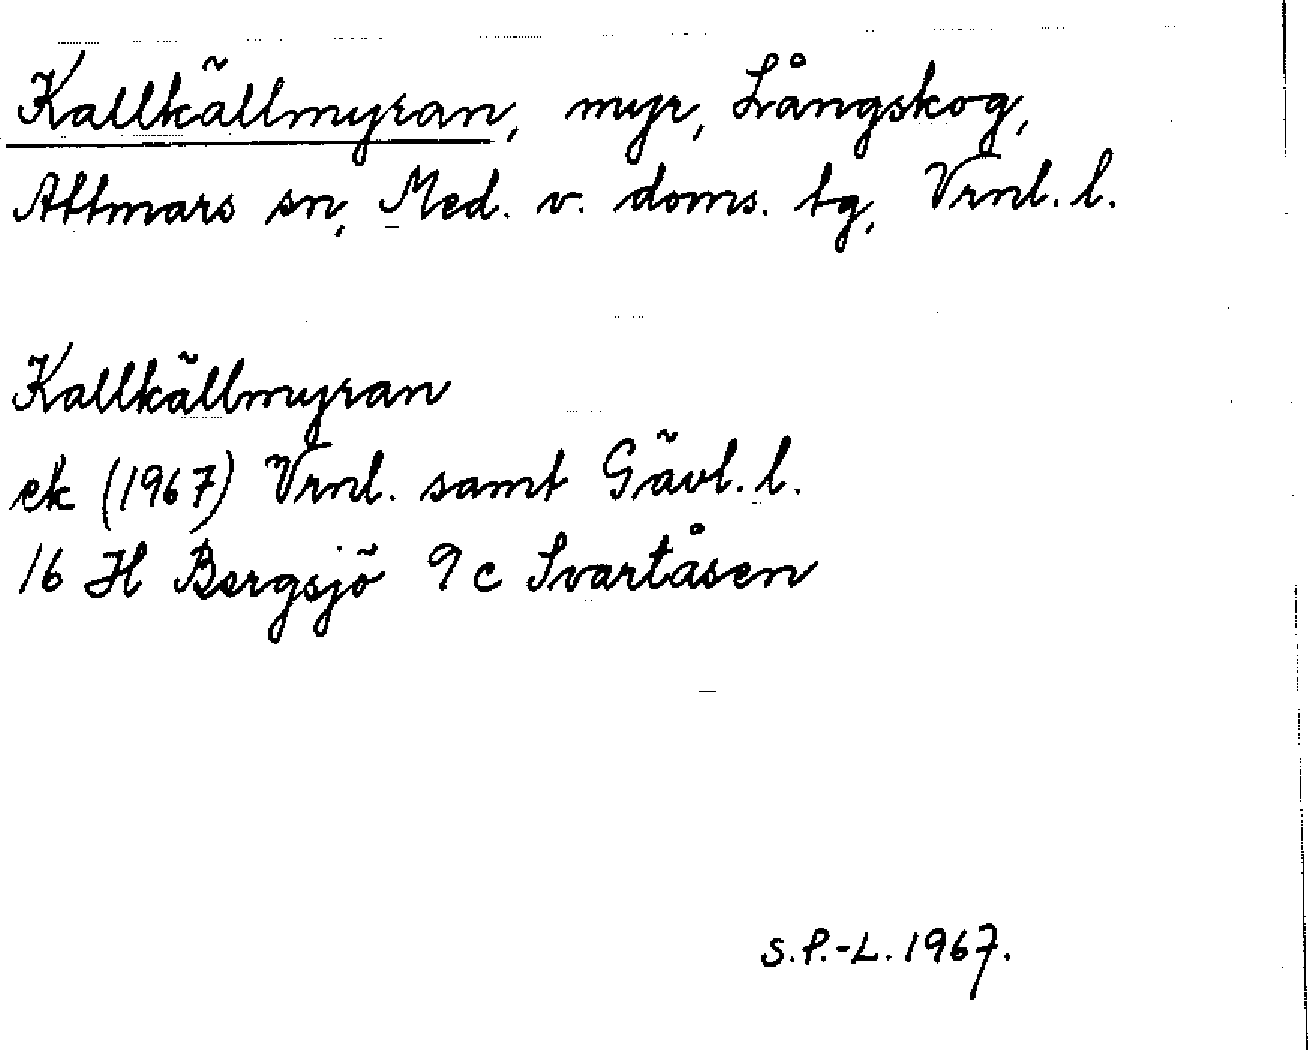 Kallkällmyran, myr, Långskog,
Attmars sn, Med. v. doms. tg, Vrnl. l.
Kallkällmyran
ek (1967) Vrnl. samt Gävl. l.
16 H Bergsjö 9 c Svartåsen
S.P.-L. 1967.